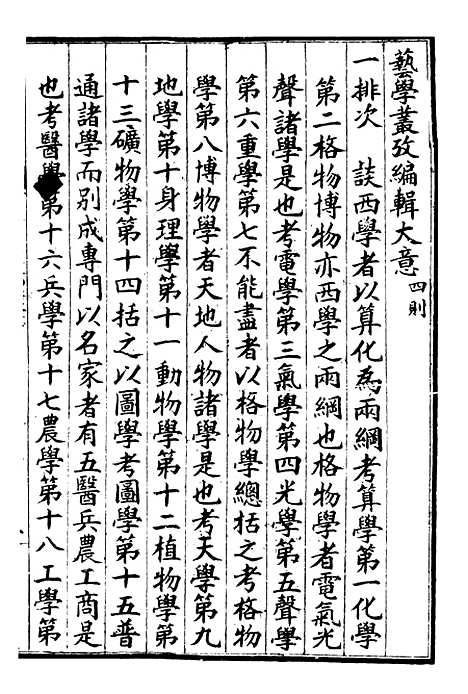 藝學叢攷編輯大意四則
一排次　談西學者以算化為兩綱考算學第一化學
第二格物博物亦西學之兩綱也格物學者電氣光
聲諸學是也考電學第三氣學第四光學第五聲學
第六重學第七不能盡者以格物學總括之考格物
學第八博物學者天地人物諸學是也考天學第九
地學第十身理學第十一動物學第十二植物學第
十三礦物學第十四括之以圖學考圖學第十五普
通諸學而別成專門以名家者有五醫兵農工商是
也考醫學第十六兵學第十七農學第十八工學第